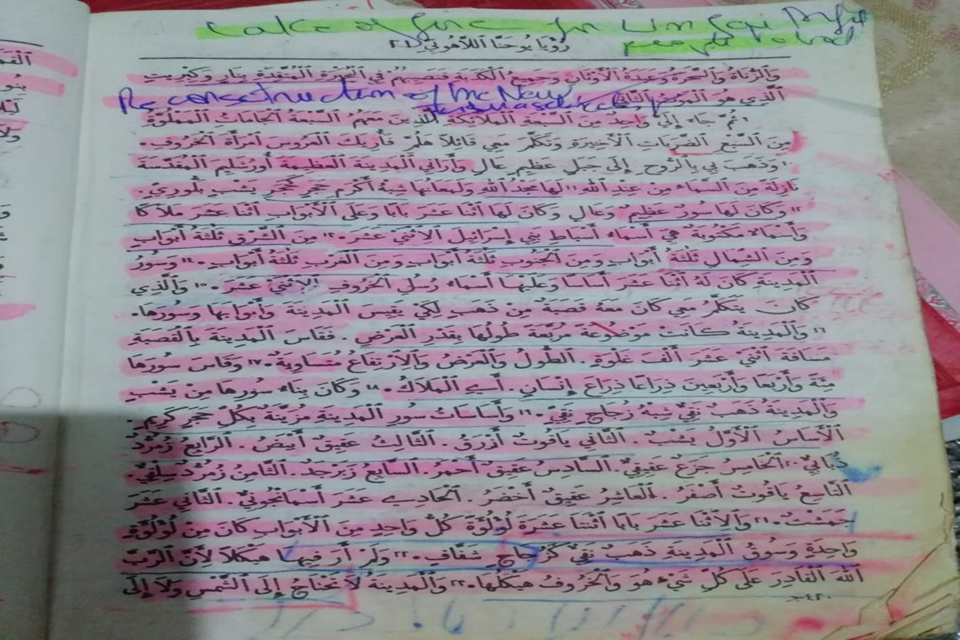 Lake of fire - for
رُؤْيَا يُوحَنَّا اللَّاهُوتِيِّ ٢١
وَالزُّنَاةُ وَالسَّحَرَةُ وَعَبَدَةُ الْأَوْثَانِ وَجَمِيعُ الْكَذَبَةِ فَنَصِيبُهُمْ فِي الْبُحَيْرَةِ الْمُتَّقِدَةِ بِنَارٍ وَكِبْرِيتٍ
الَّذِي هُوَ الْمَوْتُ الثَّانِي
Reconstruction of the New
ثُمَّ جَاءَ إِلَيَّ وَاحِدٌ مِنَ السَّبْعَةِ الْمَلَائِكَةِ الَّذِينَ مَعَهُمُ السَّبْعَةُ الْجَامَاتِ الْمَمْلُوَّةِ
مِنَ السَّبْعِ الضَّرَبَاتِ الْأَخِيرَةِ وَتَكَلَّمَ مَعِي قَائِلًا هَلُمَّ فَأُرِيَكَ الْعَرُوسَ امْرَأَةَ الْخَرُوفِ.
١٠ وَذَهَبَ بِي بِالرُّوحِ إِلَى جَبَلٍ عَظِيمٍ عَالٍ وَأَرَانِي الْمَدِينَةَ الْعَظِيمَةَ أُورُشَلِيمَ الْمُقَدَّسَةَ
نَازِلَةً مِنَ السَّمَاءِ مِنْ عِنْدِ اللهِ ١١ لَهَا مَجْدُ اللهِ وَلَمَعَانُهَا شِبْهُ أَكْرَمِ حَجَرٍ كَحَجَرِ يَشْبٍ بَلُّورِيٍّ.
١٢ وَكَانَ لَهَا سُورٌ عَظِيمٌ وَعَالٍ وَكَانَ لَهَا اثْنَا عَشَرَ بَابًا وَعَلَى الْأَبْوَابِ اثْنَا عَشَرَ مَلَاكًا
وَأَسْمَاءٌ مَكْتُوبَةٌ هِيَ أَسْمَاءُ أَسْبَاطِ بَنِي إِسْرَائِيلَ الِاثْنَيْ عَشَرَ. ١٣ مِنَ الشَّرْقِ ثَلَاثَةُ أَبْوَابٍ
وَمِنَ الشِّمَالِ ثَلَاثَةُ أَبْوَابٍ وَمِنَ الْجَنُوبِ ثَلَاثَةُ أَبْوَابٍ وَمِنَ الْغَرْبِ ثَلَاثَةُ أَبْوَابٍ. ١٤ وَسُورُ
الْمَدِينَةِ كَانَ لَهُ اثْنَا عَشَرَ أَسَاسًا وَعَلَيْهَا أَسْمَاءُ رُسُلِ الْخَرُوفِ الِاثْنَيْ عَشَرَ. ١٥ وَالَّذِي
كَانَ يَتَكَلَّمُ مَعِي كَانَ مَعَهُ قَصَبَةٌ مِنْ ذَهَبٍ لِكَيْ يَقِيسَ الْمَدِينَةَ وَأَبْوَابَهَا وَسُورَهَا.
١٦ وَالْمَدِينَةُ كَانَتْ مَوْضُوعَةً مُرَبَّعَةً طُولُهَا بِقَدْرِ الْعَرْضِ. فَقَاسَ الْمَدِينَةَ بِالْقَصَبَةِ
مَسَافَةَ اثْنَيْ عَشَرَ أَلْفَ غَلْوَةٍ الطُّولُ وَالْعَرْضُ وَالِارْتِفَاعُ مُتَسَاوِيَةٌ. ١٧ وَقَاسَ سُورَهَا
مِئَةً وَأَرْبَعًا وَأَرْبَعِينَ ذِرَاعًا ذِرَاعَ إِنْسَانٍ أَيِ الْمَلَاكُ. ١٨ وَكَانَ بِنَاءُ سُورِهَا مِنْ يَشْبٍ
وَالْمَدِينَةُ ذَهَبٌ نَقِيٌّ شِبْهُ زُجَاجٍ نَقِيٍّ. ١٩ وَأَسَاسَاتُ سُورِ الْمَدِينَةِ مُزَيَّنَةٌ بِكُلِّ حَجَرٍ كَرِيمٍ
الْأَسَاسُ الْأَوَّلُ يَشْبٌ. الثَّانِي يَاقُوتٌ أَزْرَقُ. الثَّالِثُ عَقِيقٌ أَبْيَضُ. الرَّابِعُ زُمُرُّدٌ
ذُبَابِيٌّ ٢٠ الْخَامِسُ جَزَعٌ عَقِيقِيٌّ. السَّادِسُ عَقِيقٌ أَحْمَرُ. السَّابِعُ زَبَرْجَدٌ. الثَّامِنُ زُمُرُّدٌ سِلْقِيٌّ.
التَّاسِعُ يَاقُوتٌ أَصْفَرُ. الْعَاشِرُ عَقِيقٌ أَخْضَرُ. الْحَادِي عَشَرَ أَسْمَانْجُونِيٌّ. الثَّانِي عَشَرَ
جَمَشْتٌ. ٢١ وَالِاثْنَا عَشَرَ بَابًا اثْنَتَا عَشْرَةَ لُؤْلُؤَةً كُلُّ وَاحِدٍ مِنَ الْأَبْوَابِ كَانَ مِنْ لُؤْلُؤَةٍ
وَاحِدَةٍ وَسُوقُ الْمَدِينَةِ ذَهَبٌ نَقِيٌّ كَزُجَاجٍ شَفَّافٍ. ٢٢ وَلَمْ أَرَ فِيهَا هَيْكَلًا لِأَنَّ الرَّبَّ
اللهَ الْقَادِرَ عَلَى كُلِّ شَيْءٍ هُوَ وَالْخَرُوفُ هَيْكَلُهَا. ٢٣ وَالْمَدِينَةُ لَا تَحْتَاجُ إِلَى الشَّمْسِ وَلَا إِلَى
٤٢٠